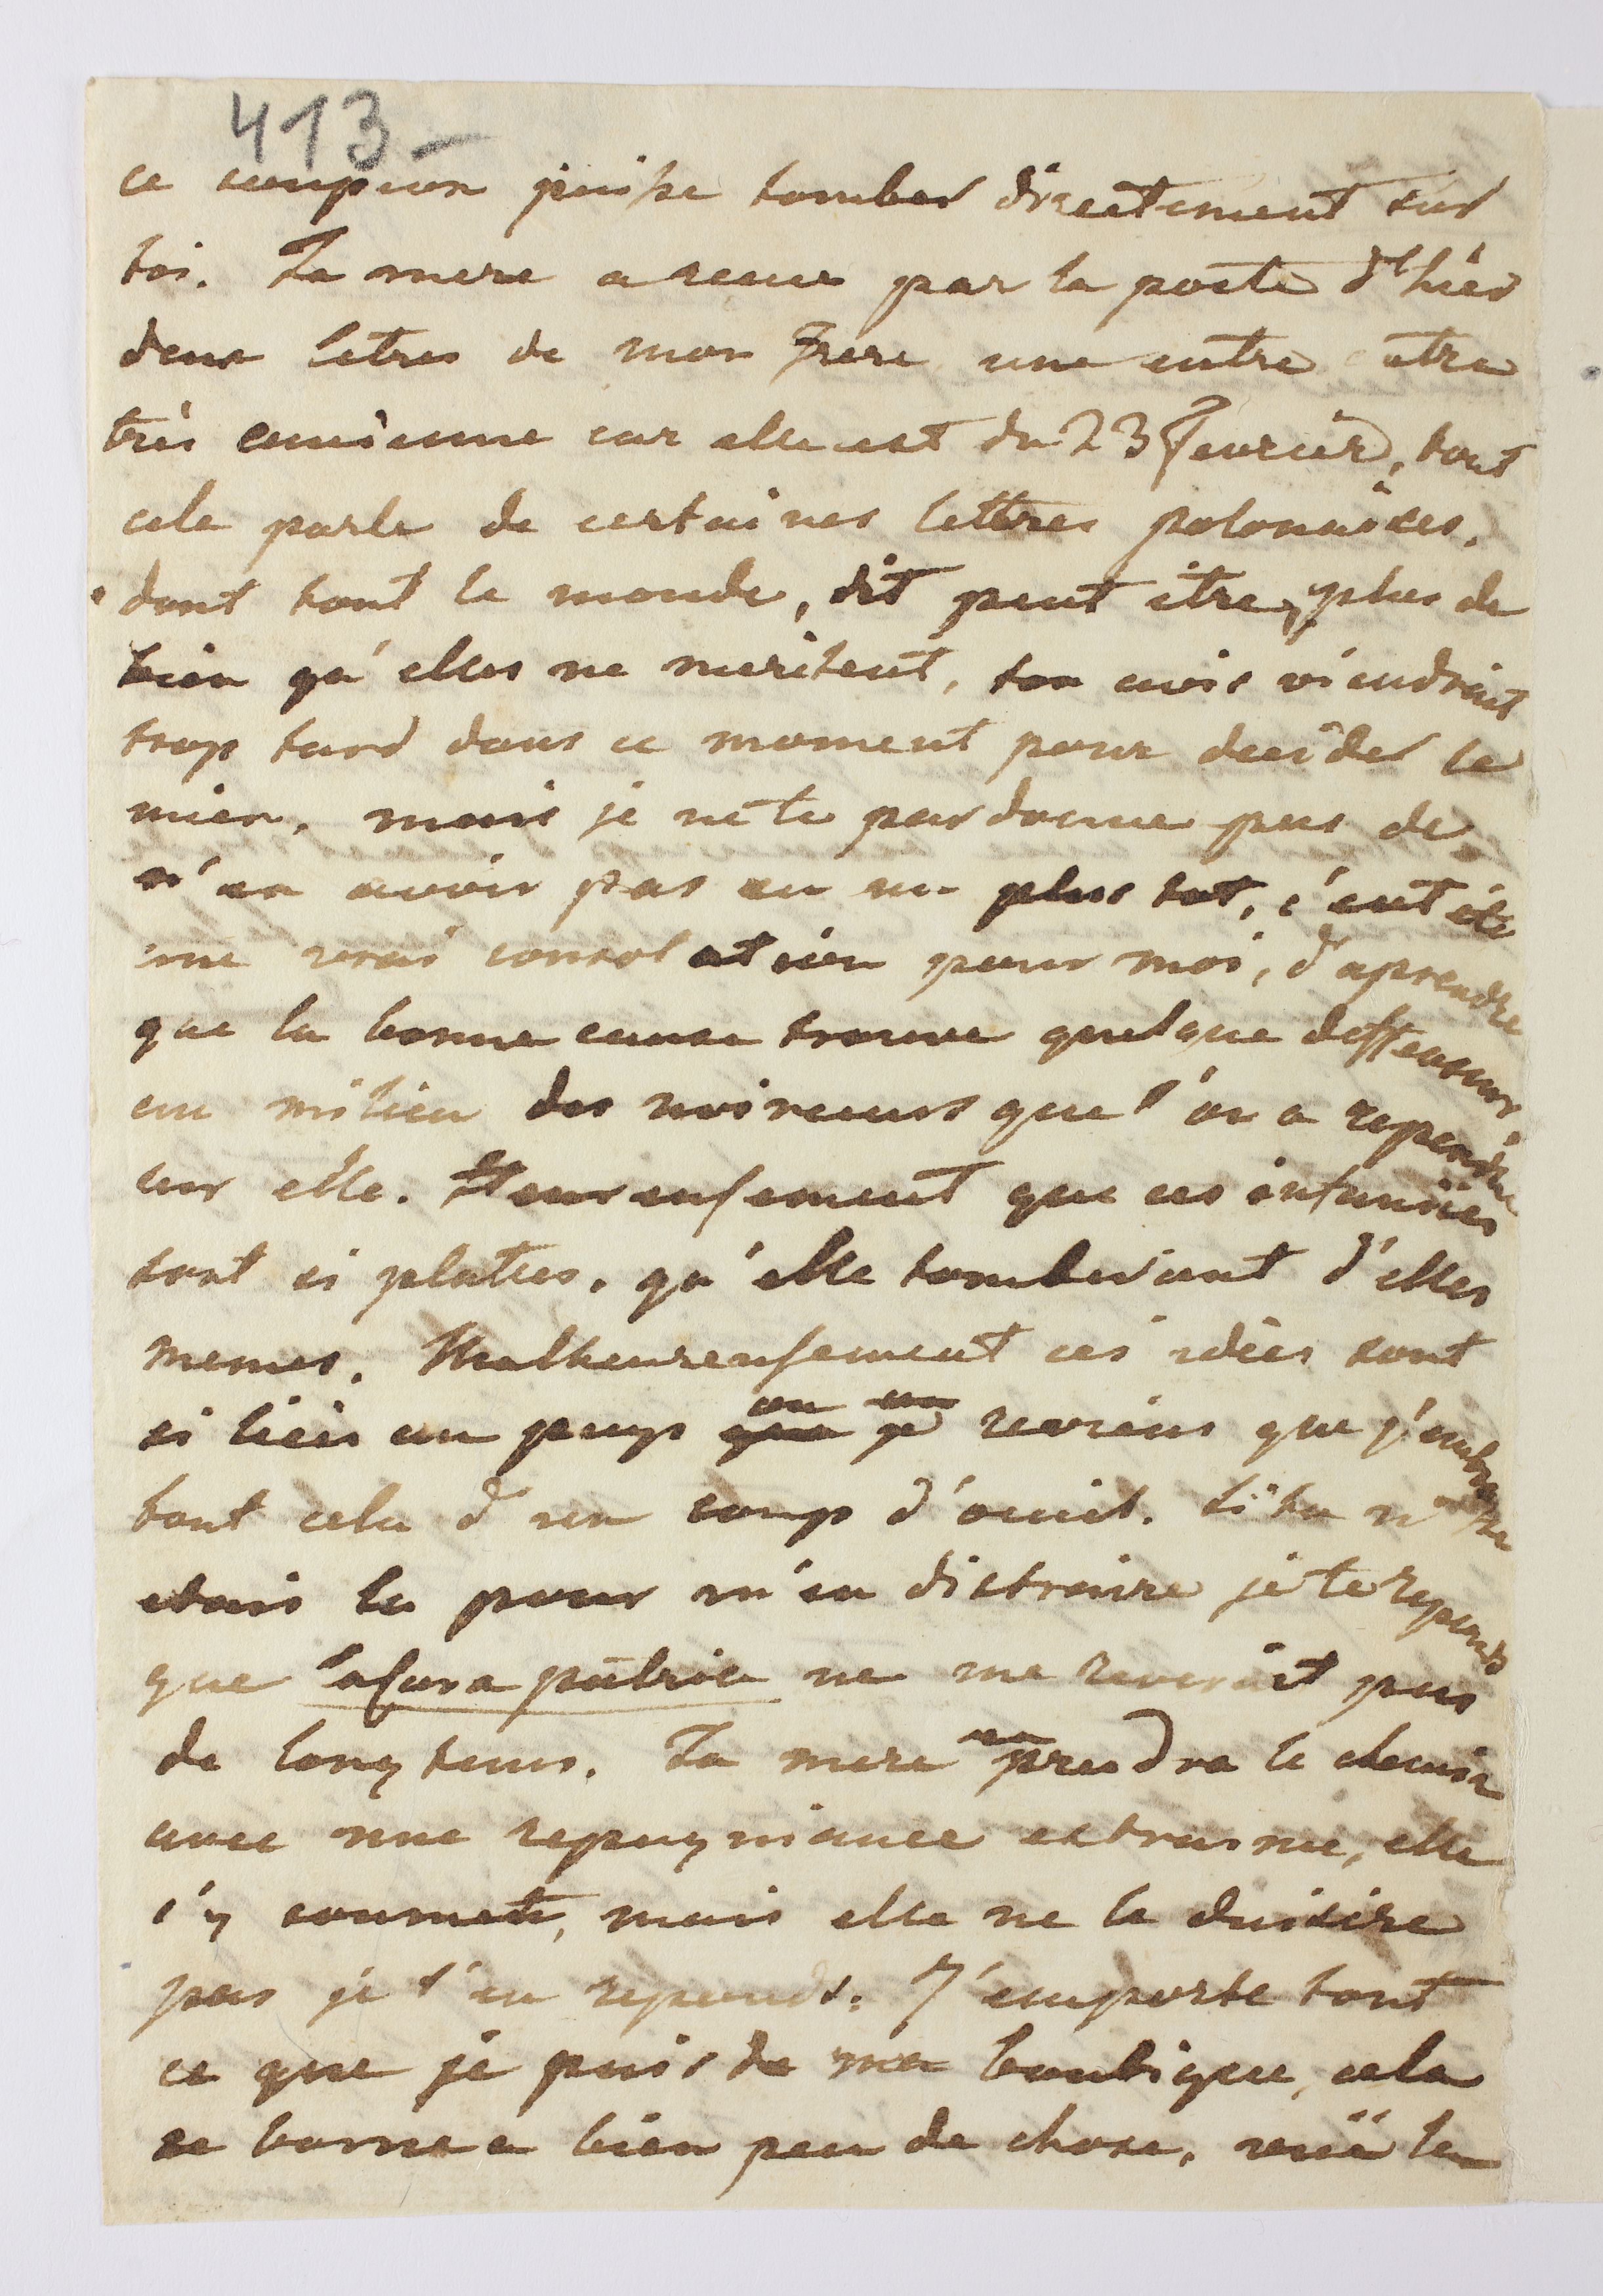 413 -
ce soupson puisse tomber directement sur
toi. Ta mere a recue par la poste d'hier
deux letres de mon Frere une entre otre
très ancienne car elle est du 23 Fevrier, tout
cela parle de certaines lettres polonaises.
dont tout le monde, dit peut être, plus de
bien qu'elles ne meritent, ton avis viendrait
trop tard dans ce moment pour decider le
mien. mais je ne te pardonne pas de
n'en avoir pas eu un plus tot, c'eut été
une vrai consolation pour moi, d'aprendre
que la bonne cause trouve quelque deffenseur,
au milieu des noirceurs que l'on a rependue
sur elle. Heureusement que ces infamies
sont si plates, qu'elle tomberont d'elles
memes. Malheureusement ces idées sont
si liéis au pays ou je reviens que j'embrasse
tout cela d'un coup d'oeuil. Si tu n'
etais la pour m'en distraire je te reponds
que la cara patria ne me reverait pas
de longtems. Ta mere en prendra le chemin
avec une repugniance extraime, elle
s'y soumet, mais elle ne le duisire
pas je t'en reponds. J'emporte tout
ce que je puis de ma boutique, cela
se borne a bien peu de chose, vuë la